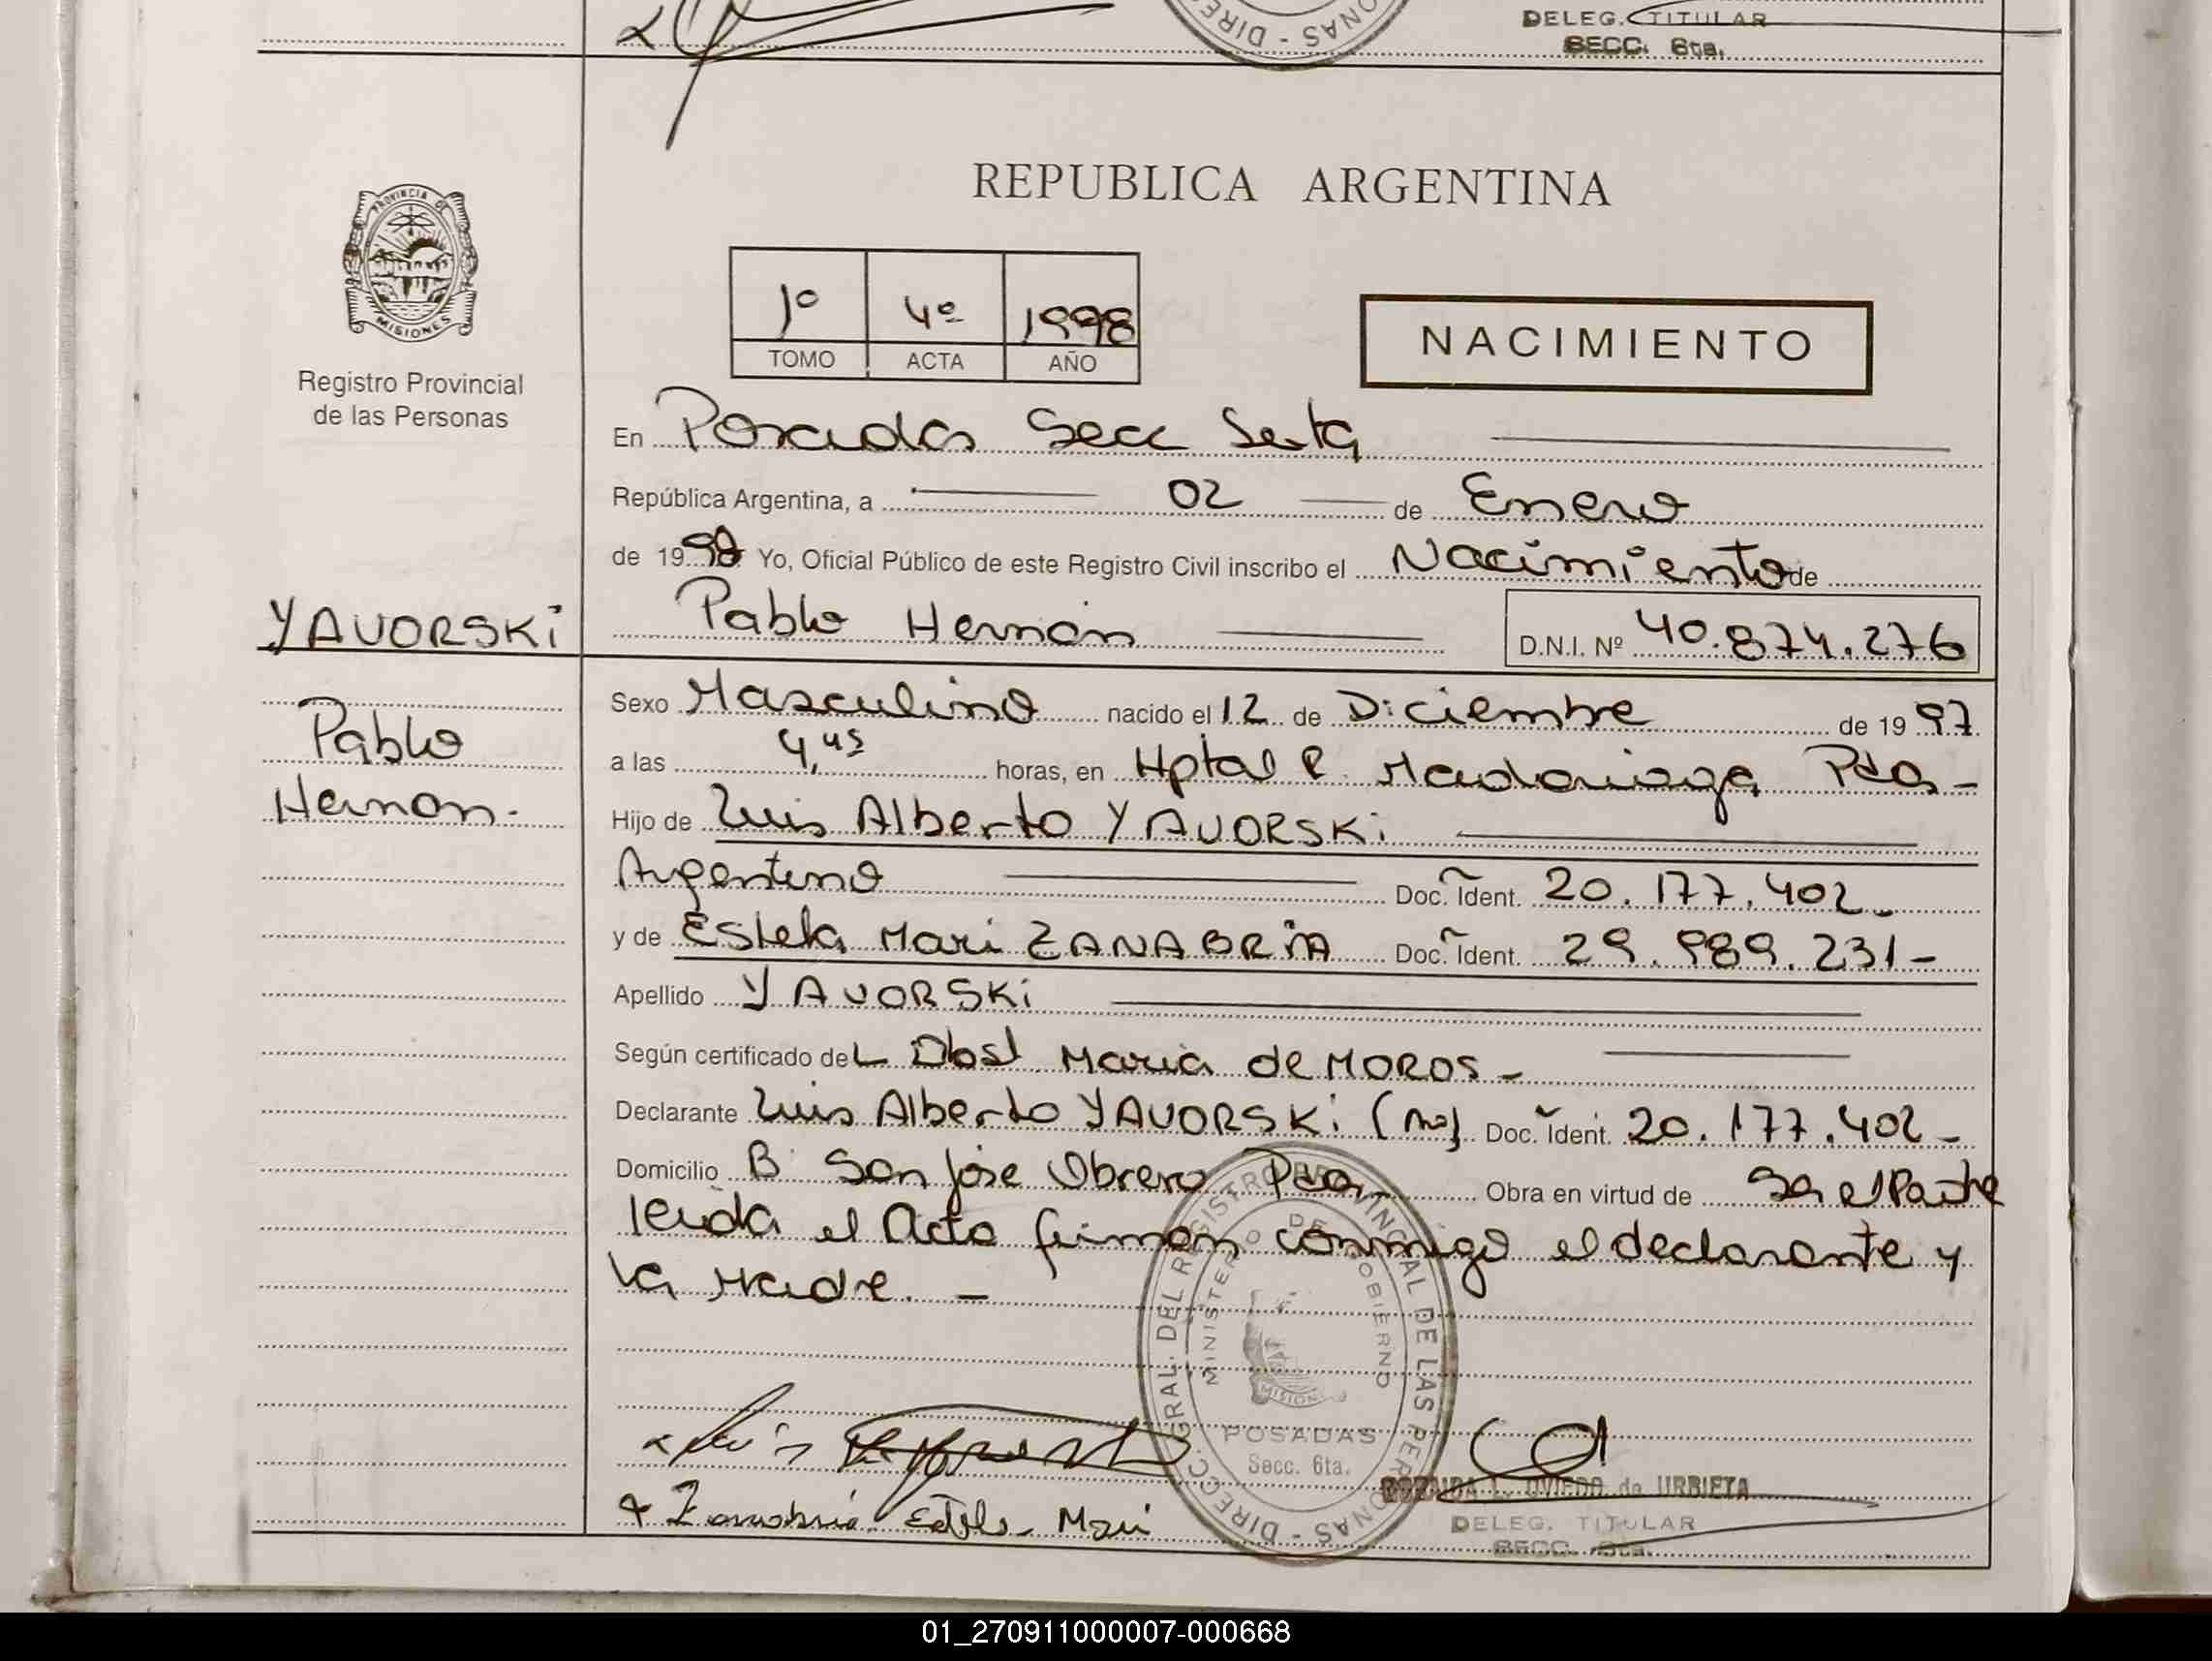 DIREC
ONAS - DIREC
DELEG. TITULAR
SECC. 6ta.
REPUBLICA ARGENTINA
PROVINCIA DE
MISIONES
Registro Provincial
de las Personas
1º 4º 1998
TOMO ACTA AÑO
NACIMIENTO
En Posadas Secc Sexta
República Argentina, a 02 de Enero
de 1998 Yo, Oficial Público de este Registro Civil inscribo el Nacimiento de
YAVORSKi Pablo Hernán D.N.I. Nº 40.874.276
Pablo
Hernan.-
Sexo Masculino nacido el 12 de Diciembre de 1997
a las 4,45 horas, en Hptal R. Madariaga Pdas -
Hijo de Luis Alberto YAVORSKi
Argentino Doc. Ident. 20.177.402-
y de Estela Mari ZANABRiA Doc. Ident. 29.989.231-
Apellido YAVORSKi
Según certificado de L Obst Maria de MOROS -
Declarante Luis Alberto YAVORSKi Doc. Ident. 20.177.402-
Domicilio B San Jose Obrero Pdas Obra en virtud de Ser el Padre
leida el Acta firman conmigo el declarante y
la Madre. -
DIRECC. GRAL. DEL REGISTRO PROVINCIAL DE LAS PERSONAS
MINISTERIO DE GOBIERNO
MISIONES
POSADAS
Secc. 6ta.
Luis
Zanabria Estela Mari
L. OVIEDO de URBIETA
DELEG. TITULAR
SECC. 6ta.
01_270911000007-000668